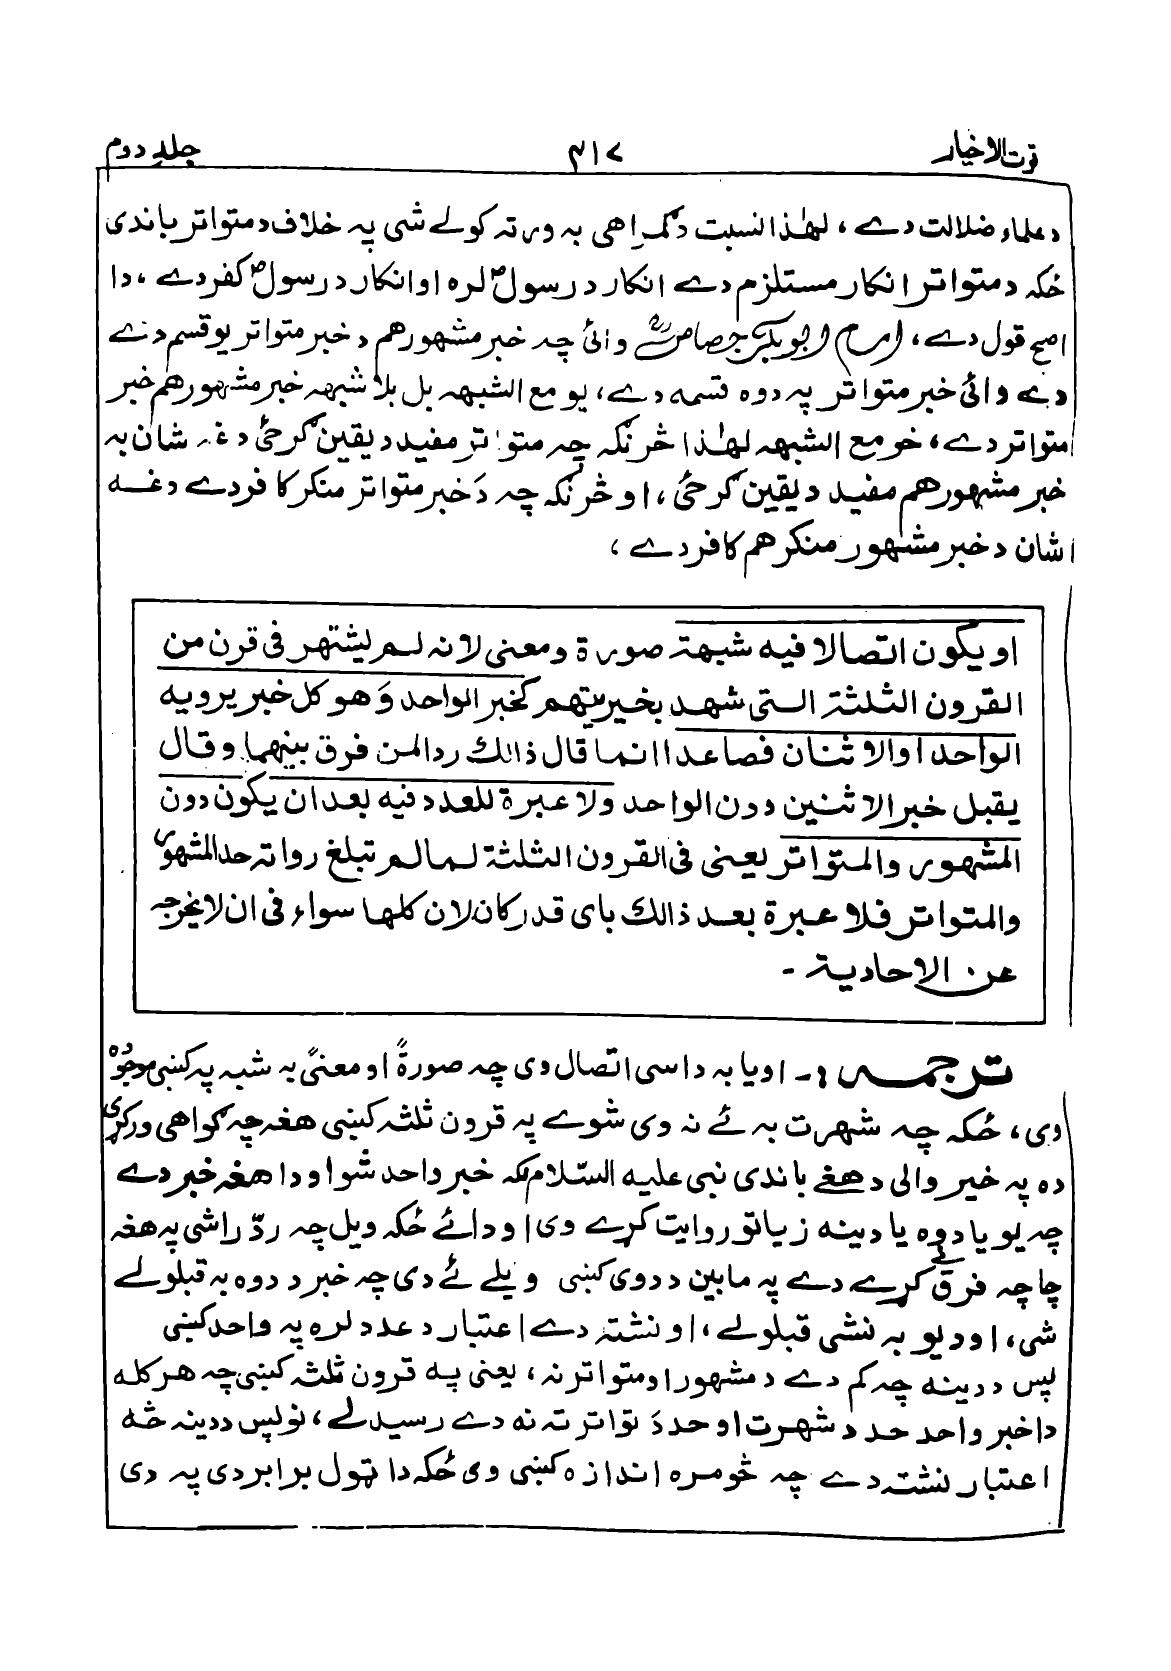 قوت الاخيار ٣١٧ جلد دوم
د علماء ضلالت دے، لهٰذا نسبت د ګمراهی به ورته کولے شی په خلاف د متواتر باندی
ځکه د متواتر انکار مستلزم دے انکار د رسولؐ لره او انکار د رسولؐ کفر دے، دا
اصح قول دے، امام ابوبکر جصاصؒ وائی چه خبر مشهور هم د خبر متواتر یو قسم دے
دے وائی خبر متواتر په دوه قسمه دے، یو مع الشبهه بل بلا شبهه خبر مشهور هم خبر
متواتر دے، خو مع الشبهه لهٰذا څرنګه چه متواتر مفید د یقین ګرځی دغه شان به
خبر مشهور هم مفید د یقین ګرځی، او څرنګه چه دَ خبر متواتر منکر کافر دے دغه
شان د خبر مشهور منکر هم کافر دے،
او يكون اتصالا فيه شبهة صورة ومعنى لانه لم يشتهر فى قرن من
القرون الثلثة التى شهد بخيريتهم كخبر الواحد وَهو كل خبر يرويه
الواحد او الاثنان فصاعدا انما قال ذالك ردا لمن فرق بينهما وقال
يقبل خبر الاثنين دون الواحد ولا عبرة للعدد فيه بعد ان يكون دون
المشهور والمتواتر يعنى فى القرون الثلثة لما لم تبلغ رواته حد المشهور
والمتواتر فلا عبرة بعد ذالك باى قدر كان لان كلها سواء فى ان لا يخرجه
عن الاحادية -
ترجمه :- او یا به داسی اتصال وی چه صورةً او معنیً به شبه په کښی موجوده
وی، ځکه چه شهرت به ئے نه وی شوے په قرون ثلثه کښی هغه چه ګواهی ورکړی
ده په خیر والی د هغے باندی نبی علیه السّلام لکه خبر واحد شو او دا هغه خبر دے
چه یو یا دوه یا دینه زیاتو روایت کړے وی او دائے ځکه ویل چه ردّ راشی په هغه
چاچه فرق ئے کړے دے په مابین د دوی کښی ویلے ئے دی چه خبر د دوه به قبلولے
شی، او د یو به نشی قبلولے، او نشته دے اعتبار د عدد لره په واحد کښی
پس د دینه چه کم دے د مشهور او متواتر نه، یعنی په قرون ثلثه کښی چه هر کله
دا خبر واحد حد د شهرت او حد دَ تواتر ته نه دے رسیدلے، نو پس د دینه څه
اعتبار نشته دے چه څومره اندازه کښی وی ځکه دا ټول برابر دی په دی